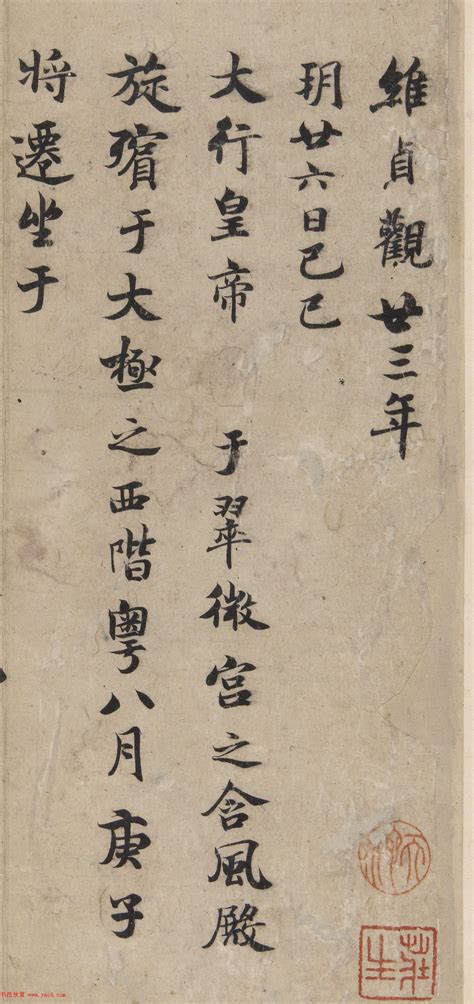 維貞觀廿三年
玥廿六日己巳
大行皇帝 于翠微宮之含風殿
旋殯于大極之西階粵八月庚子
將遷坐于
书法欣赏 www.rao5.com